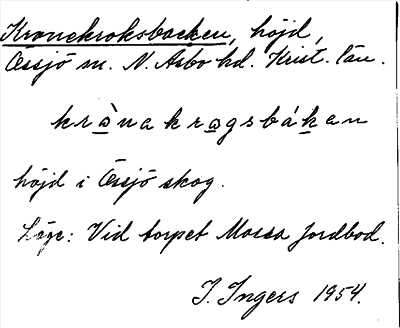 Kronekroksbacken, höjd,
Össjö sn. N. Åsbo hd. Krist. län.
krànakrogsbákan
höjd i Össjö skog.
Läge: Vid torpet Mossa Jordbod.
I. Ingers 1954.